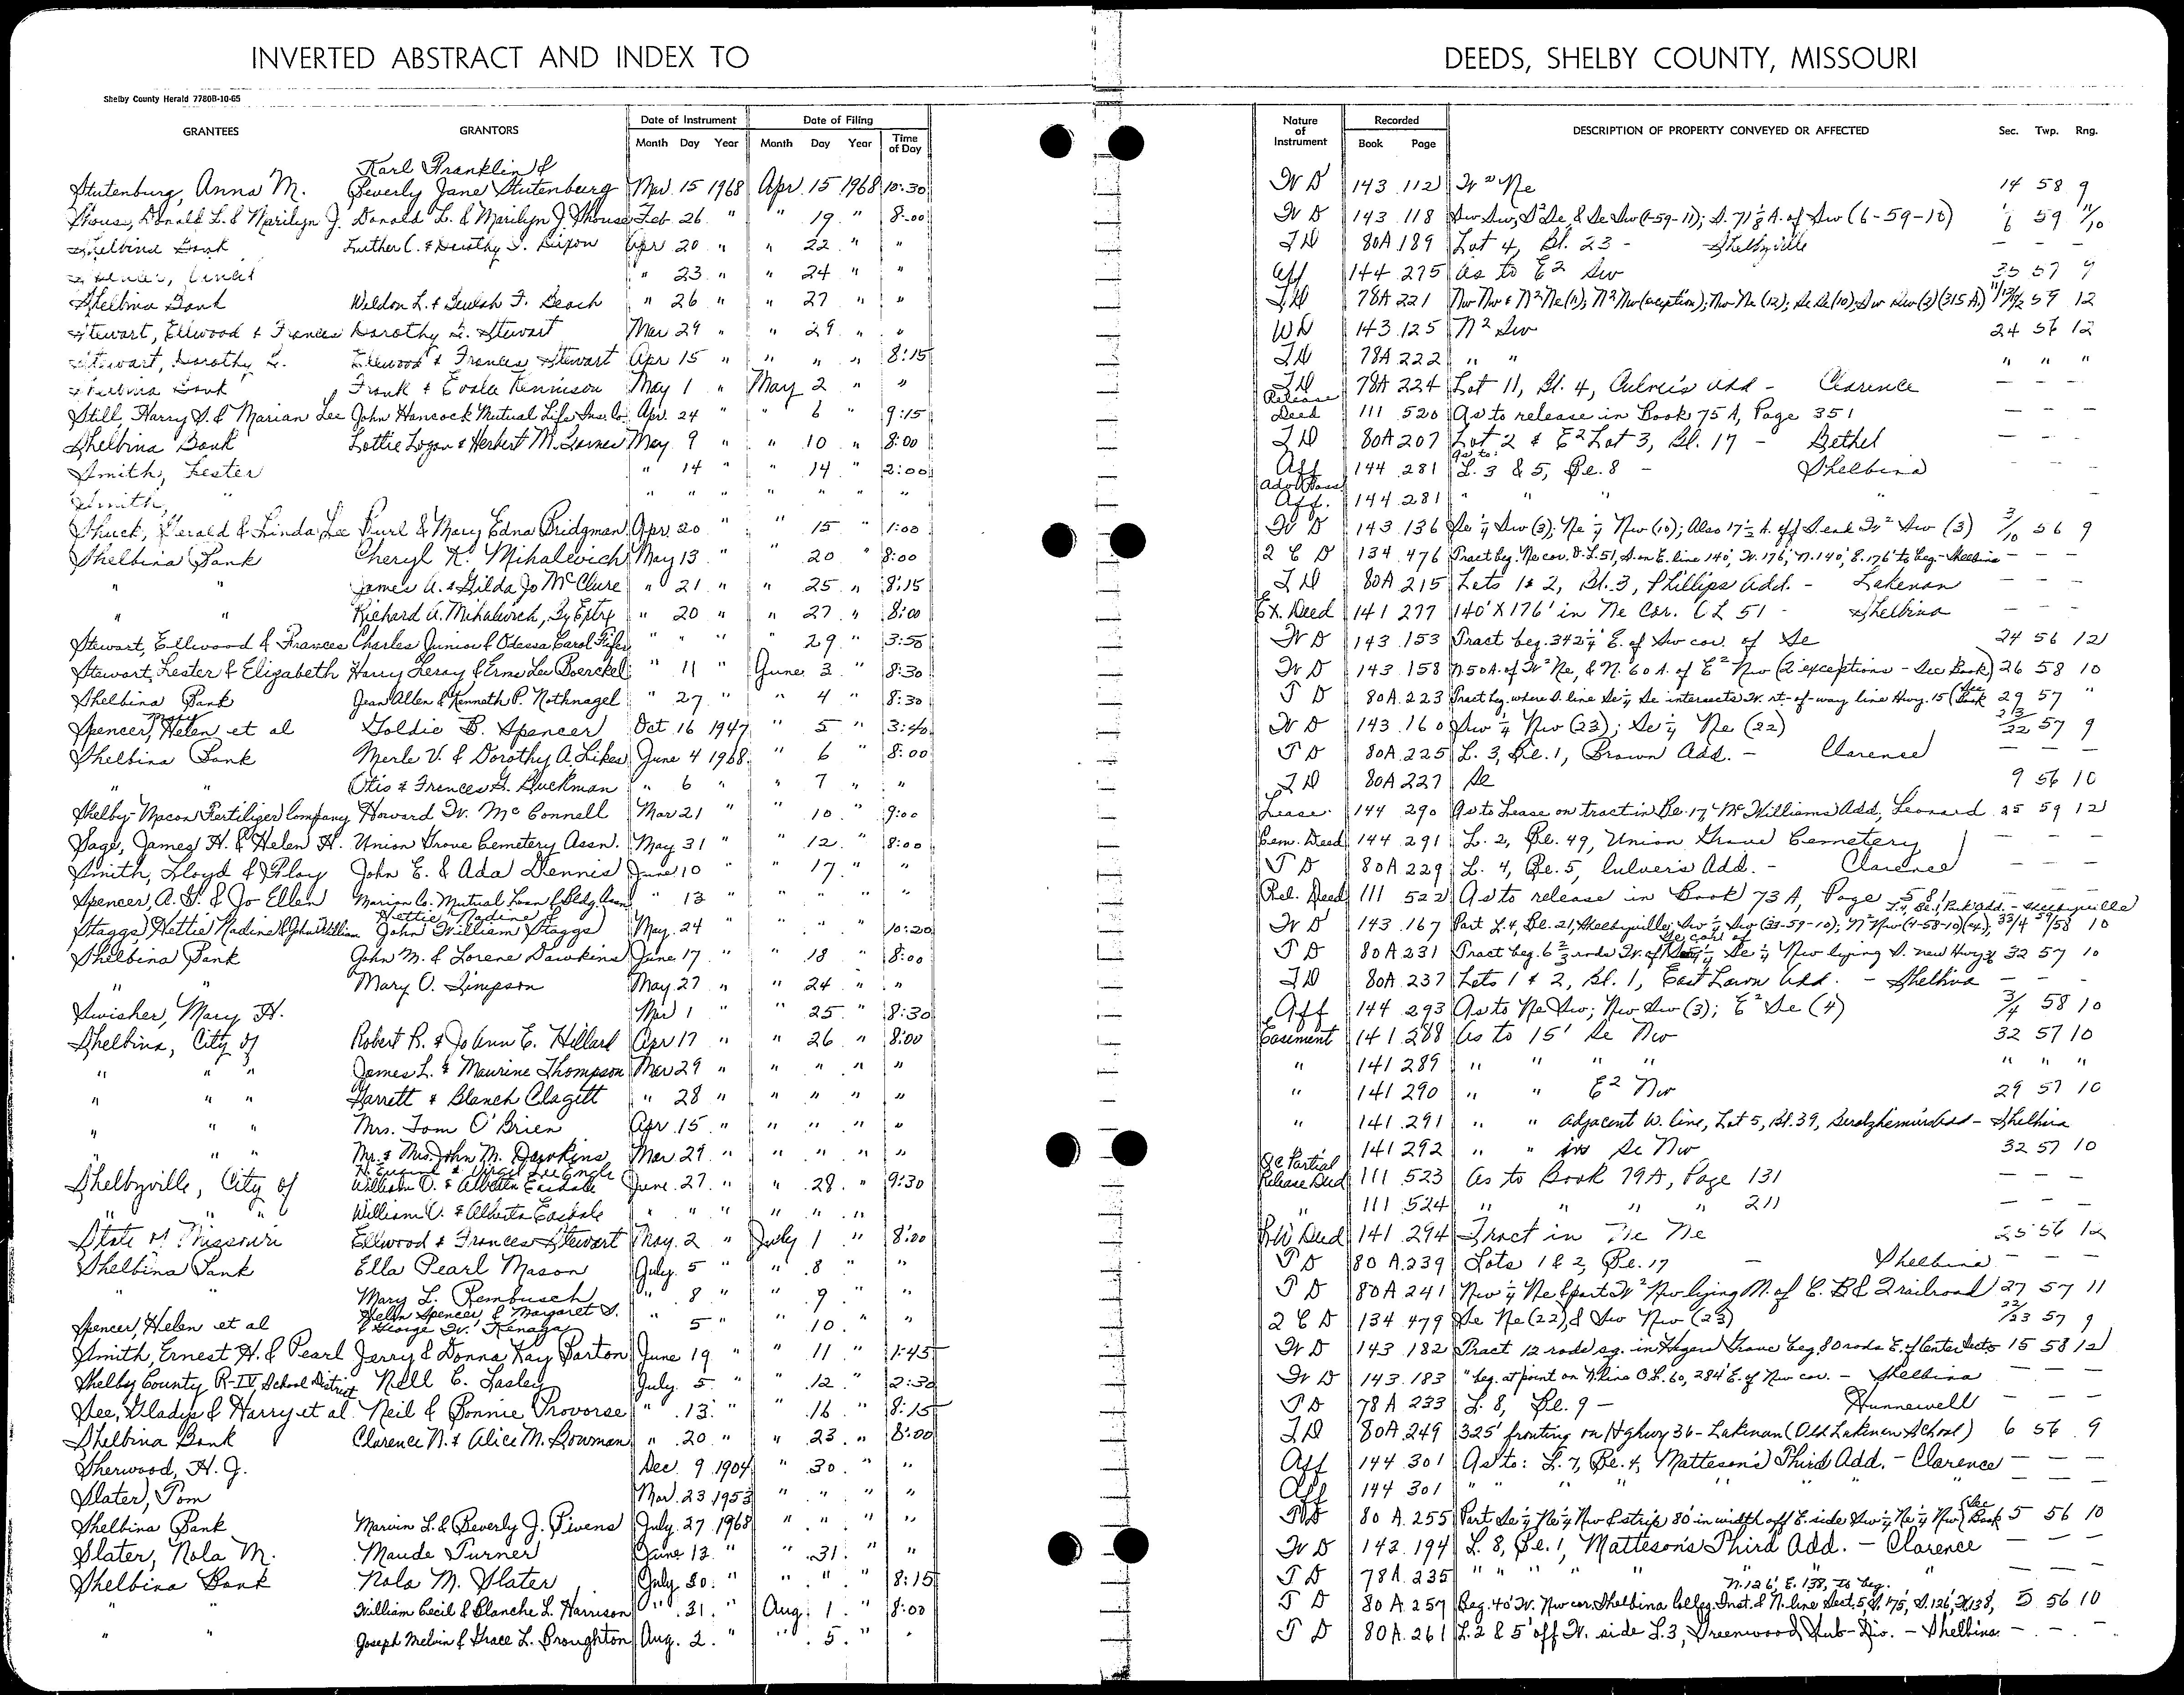 INVERTED ABSTRACT AND INDEX TO DEEDS, SHELBY COUNTY, MISSOURI
Shelby County Herald 7780B-10-65
GRANTEES GRANTORS Date of Instrument Date of Filing Nature of Instrument Recorded DESCRIPTION OF PROPERTY CONVEYED OR AFFECTED Sec. Twp. Rng.
Month Day Year Month Day Year Time of Day Book Page
Karl Franklin &
Stutenburg, Anna M. Beverly Jane Stutenburg Mar. 15 1968 Apr. 15 1968 10:30 W D 143 112 W² Ne 14 58 9
Shouse, Donald L. & Marilyn J. Donald L. & Marilyn J. Shouse Feb. 26 " " 19 " 8:00 W D 143 118 Sw Sw, S² Se, & Se Sw (1-59-11); S. 71 1/8 A. of Sw (6-59-10) 1/6 59 11/10
Shelbina Bank Luther C. & Dorothy I. Dixon Apr 20 " " 22 " " T D 80A 189 Lot 4, Bl. 23 - Shelbyville — — —
" 23 " " 24 " " Aff 144 275 As to E² Sw 35 57 9
Shelbina Bank Weldon L. & Beulah F. Beach " 26 " " 27 " " T D 78A 221 Nw Nw & N² Ne (11); N² Nw (exception); Nw Ne (12); Se Se (10); Sw Sw (2) (315 A.) 59 12
Stewart, Ellwood & Frances Dorothy L. Stewart Mar 29 " " 29 " " WD 143 125 N² Sw 24 56 12
Stewart, Dorothy L. Ellwood & Frances Stewart Apr 15 " " " " 8:15 T D 78A 222 " " " " "
Shelbina Bank Frank & Evala Kennison May 1 " May 2 " " T D 78A 224 Lot 11, Bl. 4, Culver's Add - Clarence — — —
Still, Harry S. & Marian Lee John Hancock Mutual Life Ins. Co. Apr. 24 " " 6 " 9:15 Release Deed 111 520 As to release in Book 75 A, Page 351 — — —
Shelbina Bank Lottie Logan & Herbert M. Barnes May 9 " " 10 " 8:00 T D 80A 207 Lot 2 & E² Lot 3, Bl. 17 - Bethel — — —
Smith, Lester " 14 " " 14 " 2:00 Aff 144 281 as to: L. 3 & 5, Bl. 8 - Shelbina — — —
Smith, " " " " " " " " Aff. 144 281 " " " "
Shuck, Gerald & Linda Lee Burl & Mary Edna Bridgman Apr. 20 " " 15 " 1:00 W D 143 136 Se ¼ Sw (3); Ne ¼ Nw (10); Also 17½ A. off S. end W² Sw (3) 3/10 56 9
Shelbina Bank Cheryl K. Mihalevich May 13 " " 20 " 8:00 Q C D 134 476 Tract beg. Ne cor. O.L. 51, S. on E. line 140', W. 176', N. 140', E. 176' to beg. - Shelbina — — —
" " James A. & Gilda Jo McClure " 21 " " 25 " 8:15 T D 80A 215 Lots 1 & 2, Bl. 3, Phillips Add. - Lakenan — — —
" " Richard A. Mihalevich, By Extrx " 20 " " 27 " 8:00 Ex. Deed 141 277 140' X 176' in Ne Cor. O L 51 - Shelbina — — —
Stewart, Ellwood & Frances Charles Junior & Odessa Carol Fifer " " " " 29 " 3:50 W D 143 153 Tract beg. 342¼' E. of Sw cor. of Se 24 56 12
Stewart, Lester & Elizabeth Harry Leroy & Erma Lee Boerckel " 11 " June 3 " 8:30 W D 143 158 N. 50 A. of W² Ne, & N. 60 A. of E² Nw (2 exceptions - See Book) 26 58 10
Shelbina Bank Jean Allen & Kenneth P. Nothnagel " 27 " " 4 " 8:30 T D 80A 223 Tract beg. where S. line Se ¼ Se intersects W. rt.-of-way line Hwy. 15 (See Book 29 57 "
Spencer, Helen et al Goldie B. Spencer Oct 16 1947 " 5 " 3:40 W D 143 160 Sw ¼ Nw (23); Se ¼ Ne (22) 23/22 57 9
Shelbina Bank Merle V. & Dorothy A. Likes June 4 1968 " 6 " 8:00 T D 80A 225 L. 3, Bl. 1, Brown Add. - Clarence — — —
" " Otis & Frances G. Buckman " 6 " " 7 " " T D 80A 227 Se 9 56 10
Shelby-Macon Fertilizer Company Howard W. McConnell Mar 21 " " 10 " 9:00 Lease 144 290 As to Lease on tract in Bl. 17 McWilliams Add, Leonard 25 59 12
Sage, James H. & Helen H. Union Grove Cemetery Assn. May 31 " " 12 " 8:00 Cem. Deed 144 291 L. 2, Bl. 49, Union Grove Cemetery — — —
Smith, Lloyd & Floy John E. & Ada Dennis June 10 " " 17 " " T D 80A 229 L. 4, Bl. 5, Culver's Add. - Clarence — — —
Spencer, A. G. & Jo Ellen Marion Co. Mutual Loan & Bldg. Assn " 13 " " " " " Rel. Deed 111 522 As to release in Book 73 A, Page 581 — — —
Hettie Nadine & L. 4, Bl. 1, Park Add. - Shelbyville
Staggs, Hettie Nadine & John William John William Staggs May 24 " " " " 10:20 W D 143 167 Part L. 4, Bl. 21, Shelbyville; Sw ¼ Sw (33-59-10); N² Nw (4-58-10) 33/4 59/58 10
Shelbina Bank John M. & Lorene Dawkins June 17 " " 18 " 8:00 T D 80A 231 Tract beg. 6⅔ rods W. of Se cor. of Se ¼ Nw lying S. new Hwy 32 57 10
" " Mary O. Simpson May 27 " " 24 " " T D 80A 237 Lots 1 & 2, Bl. 1, East Lawn Add. - Shelbina —
Swisher, Mary H. Mar 1 " " 25 " 8:30 Aff 144 293 As to Ne Sw; Nw Sw (3); E² Se (4) 3/4 58 10
Shelbina, City of Robert R. & JoAnn E. Hillard Apr 17 " " 26 " 8:00 Easement 141 288 As to 15' Se Nw 32 57 10
" " " James L. & Maurine Thompson Mar 29 " " " " " " 141 289 " " " " " " "
" " " Garrett & Blanch Clagett " 28 " " " " " " 141 290 " " E² Nw 29 57 10
" " " Mrs. Tom O'Brien Apr. 15 " " " " " " 141 291 " " Adjacent W. line, Lot 5, Bl. 39, Add - Shelbina
" " " Mr. & Mrs. John M. Dawkins Mar 29 " " " " " 141 292 " " in Se Nw 32 57 10
N. Eugene & Virgil Lee Engle
Shelbyville, City of William O. & Alberta Easdale June 27 " " 28 " 9:30 Partial Release Deed 111 523 As to Book 79A, Page 131 — —
" " " William O. & Alberta Easdale " " " " " " " 111 524 " " " 211 — —
State of Missouri Ellwood & Frances Stewart May 2 " July 1 " 8:00 R/W Deed 141 294 Tract in Ne Ne 25 56 12
Shelbina Bank Ella Pearl Mason July 5 " " 8 " " T D 80 A 239 Lots 1 & 2, Bl. 17 — Shelbina — — —
" " Mary L. Rembusch " 8 " " 9 " " T D 80A 241 Nw ¼ Ne & part W² Nw lying N. of C. B & Q railroad 27 57 11
Helen Spencer, & Margaret S.
Spencer, Helen et al & George W. Kenaga " 5 " " 10 " " Q C D 134 479 Se Ne (22), & Sw Nw (23) 22/23 57 9
Smith, Ernest H. & Pearl Jerry & Donna Kay Barton June 19 " " 11 " 1:45 W D 143 182 Tract 12 rods sq. in Hagers Grove beg. 80 rods E. of Center Sects 15 58 12
Shelby County R-IV School District Nell C. Lasley July 5 " " 12 " 2:30 W D 143 183 " beg. at point on N. line O.L. 60, 284' E. of Nw cor. - Shelbina — — —
See, Gladys & Harry et al Neil & Bonnie Provorse " 13 " " 16 " 8:15 T D 78 A 233 L. 8, Bl. 9 - Hunnewell — — —
Shelbina Bank Clarence N. & Alice M. Bowman " 20 " " 23 " 8:00 T D 80A 249 325' fronting on Hghwy 36 - Lakenan (Old Lakenan School) 6 56 9
Sherwood, H. J. Dec. 9 1904 " 30 " " Aff 144 301 As to: L. 7, Bl. 4, Matteson's Third Add. - Clarence — — —
Slater, Tom Mar. 23 1953 " " " " Aff 144 301 " " " " "
Shelbina Bank Marvin L. & Beverly J. Bivens July 27 1968 " " " " T D 80 A 255 Part Se ¼ Ne ¼ Nw & strip 80' in width off E. side Sw ¼ Ne ¼ Nw (See Book 5 56 10
Slater, Nola M. Maude Turner June 13 " " 31 " " W D 143 194 L. 8, Bl. 1, Matteson's Third Add. - Clarence — — —
Shelbina Bank Nola M. Slater July 30 " " " " 8:15 T D 78A 235 " " " " " — — —
N. 126', E. 138', to beg.
" " William Cecil & Blanche L. Harrison " 31 " Aug. 1 " 8:00 T D 80 A 257 Beg. 40' W. Nw cor. Shelbina Colleg. Inst. & N. line Sect. 5, S. 175', S. 126', W. 138', 5 56 10
" " Joseph Melvin & Grace L. Broughton Aug. 2 " " 5 " " T D 80A 261 L. 2 & 5' off W. side L. 3, Greenwood Sub-Div. - Shelbina — — —